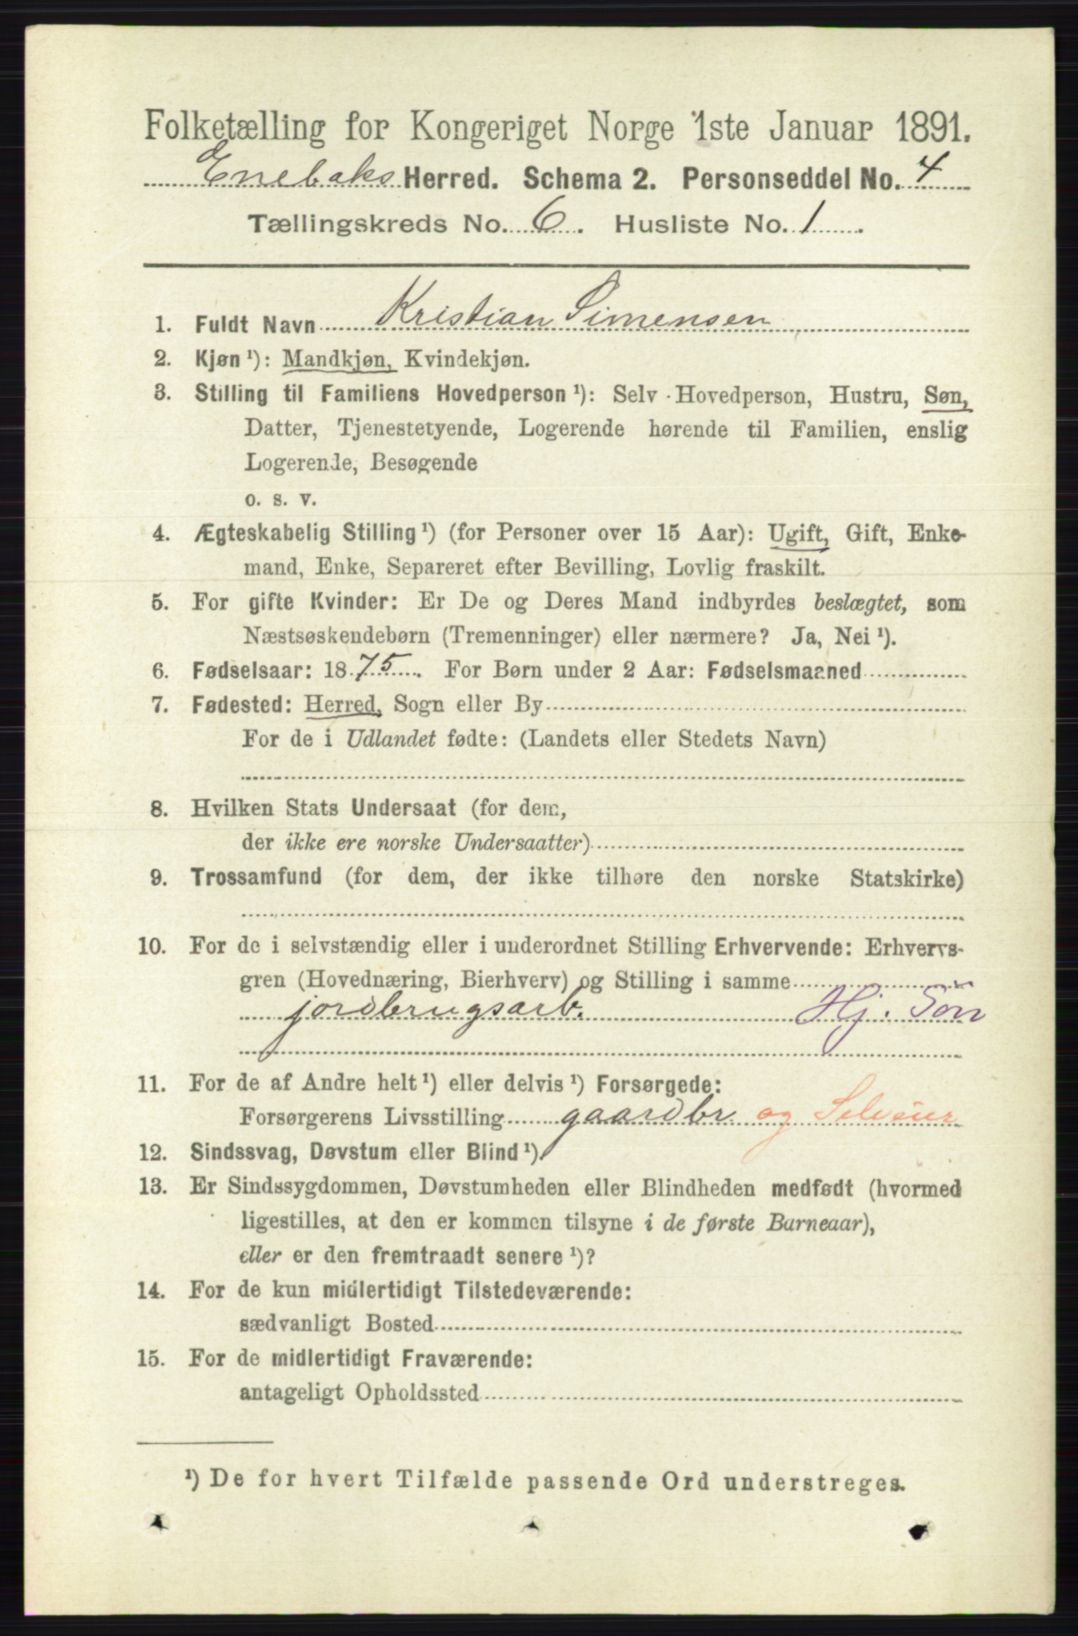 Folketælling for Kongeriget Norge 1ste Januar 1891.
Enebaks Herred. Schema 2. Personseddel No. 4
Tællingskreds No. 6. Husliste No. 1.
1. Fuldt Navn Kristian Simensen
2. Kjøn ¹): Mandkjøn, Kvindekjøn.
3. Stilling til Familiens Hovedperson ¹): Selv-Hovedperson, Hustru, Søn,
Datter, Tjenestetyende, Logerende hørende til Familien, enslig
Logerende, Besøgende
o. s. v.
4. Ægteskabelig Stilling ¹) (for Personer over 15 Aar): Ugift, Gift, Enke-
mand, Enke, Separeret efter Bevilling, Lovlig fraskilt.
5. For gifte Kvinder: Er De og Deres Mand indbyrdes beslægtet, som
Næstsøskendebørn (Tremenninger) eller nærmere? Ja, Nei ¹).
6. Fødselsaar: 1875. For Børn under 2 Aar: Fødselsmaaned
7. Fødested: Herred, Sogn eller By
For de i Udlandet fødte: (Landets eller Stedets Navn)
8. Hvilken Stats Undersaat (for dem,
der ikke ere norske Undersaatter)
9. Trossamfund (for dem, der ikke tilhøre den norske Statskirke)
10. For de i selvstændig eller i underordnet Stilling Erhvervende: Erhvervs-
gren (Hovednæring, Bierhverv) og Stilling i samme
jordbrugsarb. Hj. Søn
11. For de af Andre helt ¹) eller delvis ¹) Forsørgede:
Forsørgerens Livsstilling gaardbr og Seleier
12. Sindssvag, Døvstum eller Blind ¹).
13. Er Sindssygdommen, Døvstumheden eller Blindheden medfødt (hvormed
ligestilles, at den er kommen tilsyne i de første Barneaar),
eller er den fremtraadt senere ¹)?
14. For de kun midlertidigt Tilstedeværende:
sædvanligt Bosted
15. For de midlertidigt Fraværende:
antageligt Opholdssted
¹) De for hvert Tilfælde passende Ord understreges.